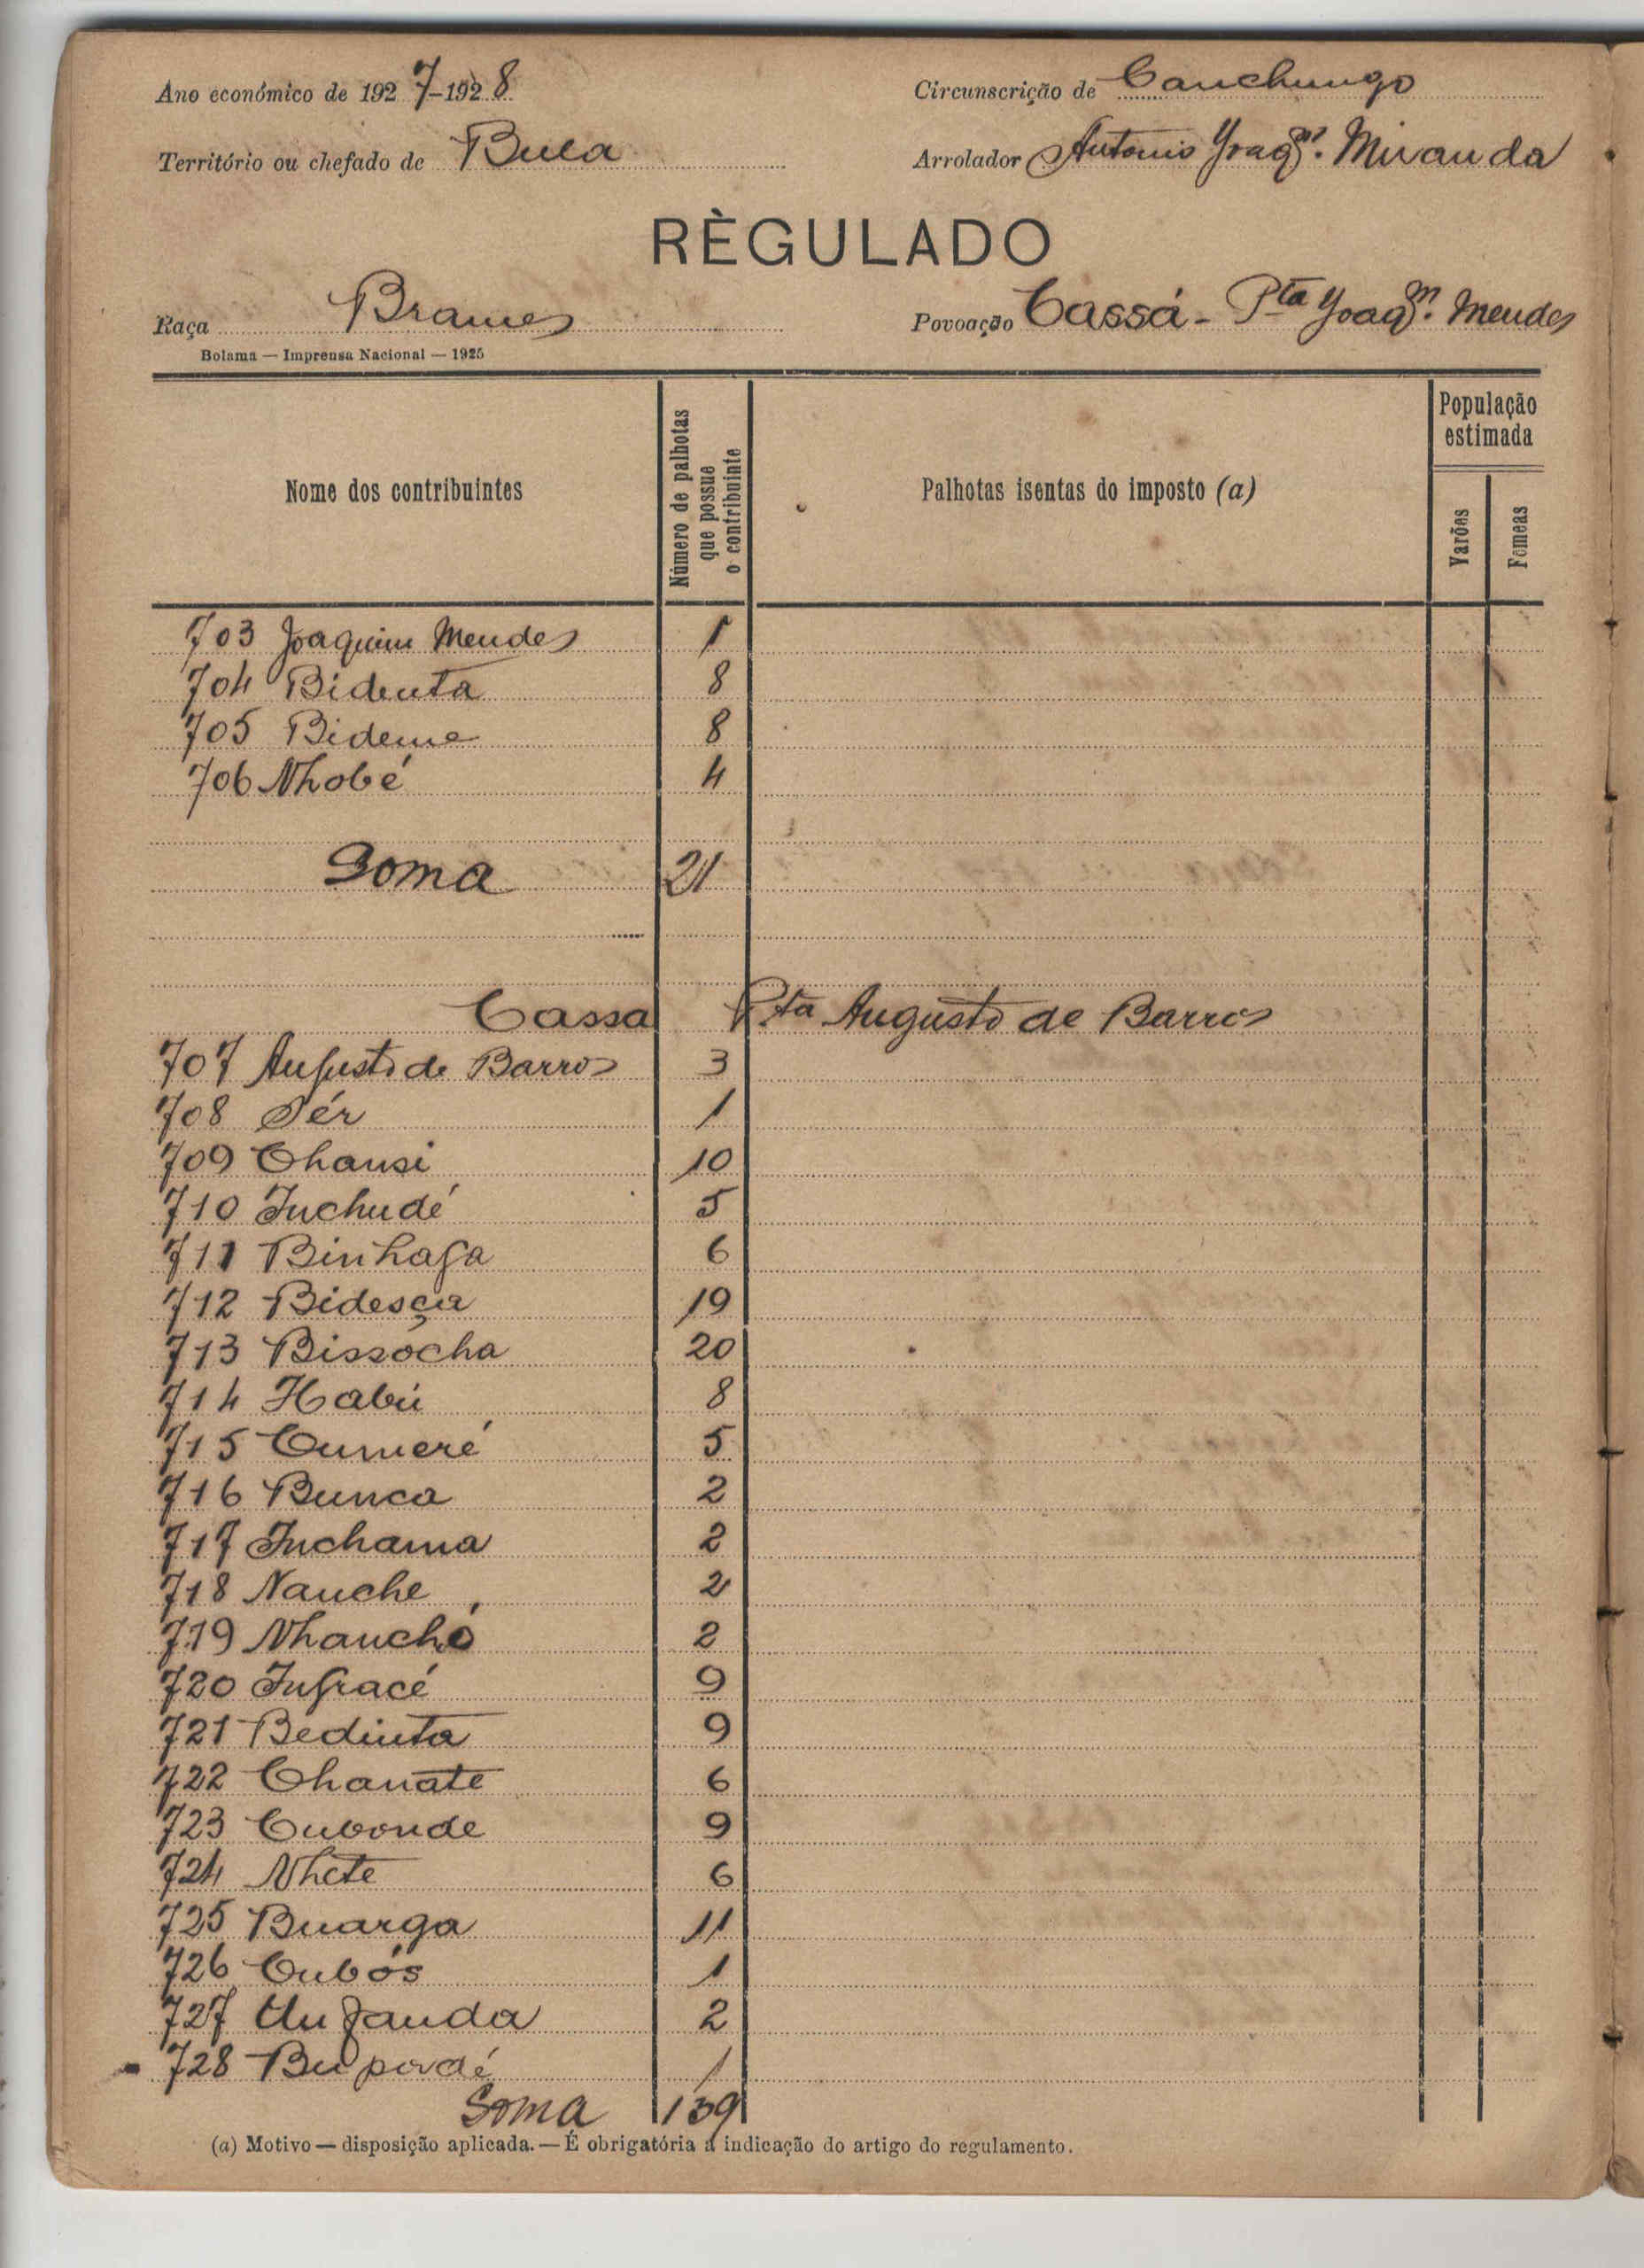 Ano económico de 1927-1928
Circunscrição de Canchungo
Território ou chefado de Bula
Arrolador Antonio Joaqm. Miranda
RÈGULADO
Raça Brames
Povoação Cassá - Pta Joaqm. Mendes
Bolama — Imprensa Nacional — 1925
Nome dos contribuintes
Número de palhotas que possue o contribuinte
Palhotas isentas do imposto (a)
População estimada
Varões
Fêmeas
703 Joaquim Mendes 1
704 Bidenta 8
705 Bideme 8
706 Nhobé 4
Soma 21
Cassa Pta Augusto de Barros
707 Augusto de Barros 3
708 Sér 1
709 Chansi 10
710 Inchudé 5
711 Binhaga 6
712 Bidesça 19
713 Bissócha 20
714 Habú 8
715 Cumeré 5
716 Bunca 2
717 Inchama 2
718 Nanche 2
719 Nhanchó 2
720 Ingracé 9
721 Bedinta 9
722 Chanate 6
723 Cubonde 9
724 Nhete 6
725 Buarga 11
726 Cubós 1
727 Unfanda 2
728 1
Soma 139
(a) Motivo — disposição aplicada. — É obrigatória a indicação do artigo do regulamento.